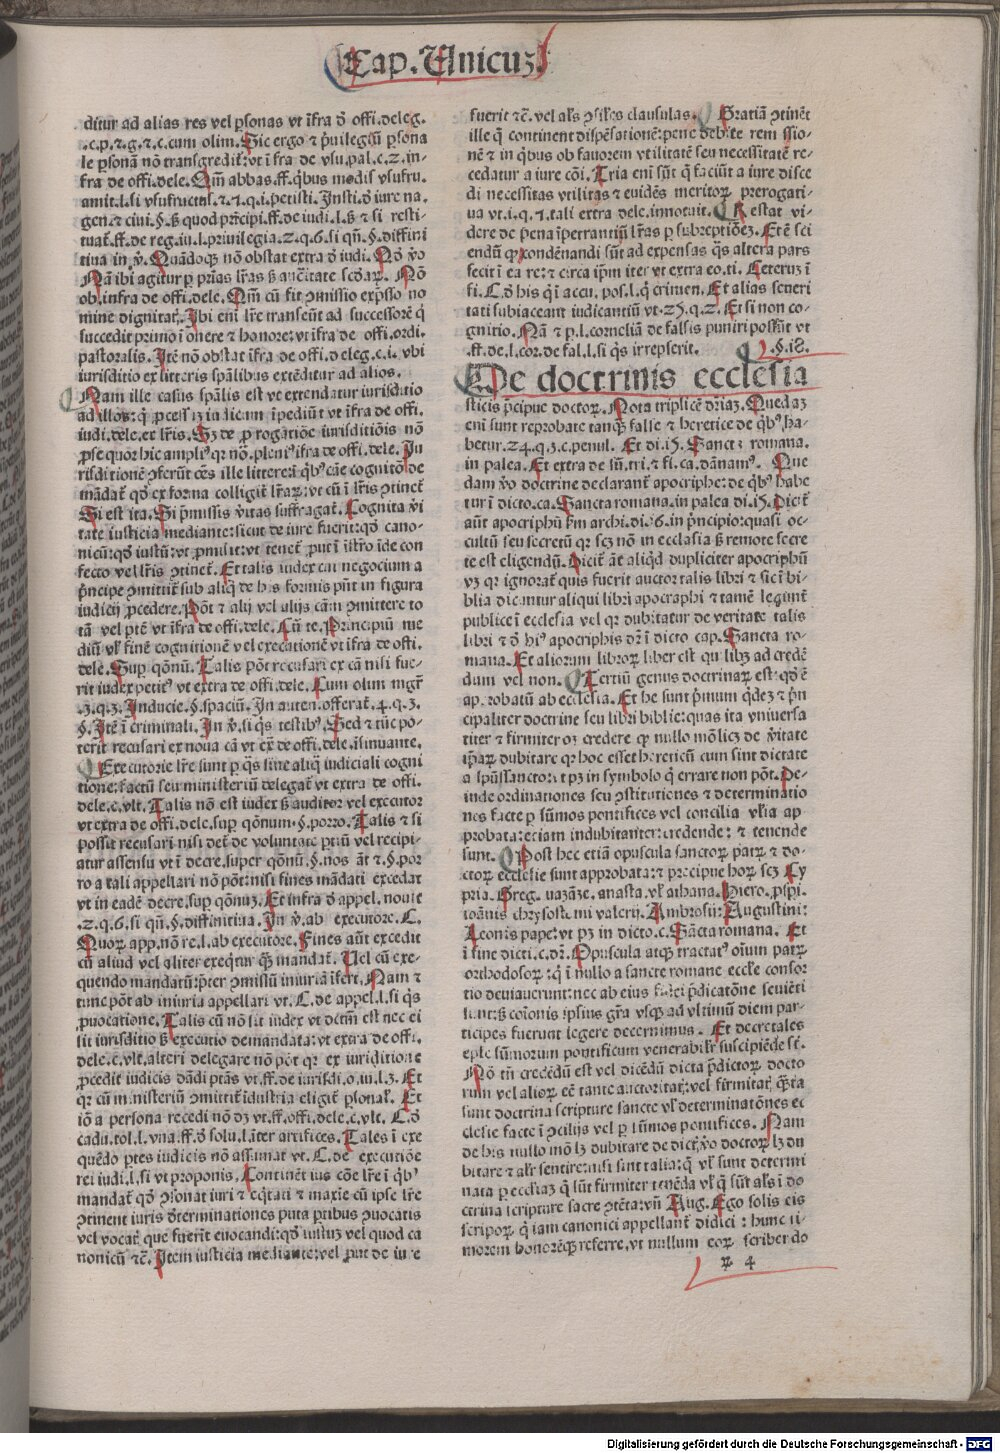 Cap. Unicuꝫ.
ditur ad alias res vel ꝑsonas vt ĩfra ð offi.deleg.
.c.p.⁊.g.⁊.c.cum olim.Sic ergo ⁊ p̃uilegiũ ꝑsona
le ꝑsonã nõ transgredit᷑:vt ĩ fra de vsu.pal.c.2.in-
fra de offi.dele. Qm̃ abbas.ff.q̃bus modis vsufru.
amit.l.si vsufructus.⁊.1.q.i.petisti. Insti.ð iure na.
gen.⁊ ciui.§.ꝫ quod prĩcipi.ff.de iudi.l.ꝫ ⁊ si resti-
tuat᷑.ff.de reg.iu.l.priuilegia.2.q.6.si qñ.§.diffini
tiua in ꝟ.
Nã ibi agitur ꝑ prias lr̃as
ob.infra de offi.dele. Qm̃ cũ fit ꝯmissio exp̃sso no
mine dignitat᷑. Ibi eni lr̃e transeũt ad successorẽ q̃
succedit primo ĩ onere ⁊ honore:vt ĩfra de offi.ordi.
pastoralis. Itẽ nõ obstat ĩfra de offi.deleg.c.i. vbi
iurisditio ex litteris sp̃alibus extẽditur ad alios.
Nam ille casus sp̃alis est vt extendatur iurisditio
ad illos:q̃ ꝓcessuꝫ iudicum ĩpediũt vt ĩfra de offi.
iudi.dele.ex lr̃is. Sꝫ de ꝓrogatiõe iurisditiõis nõ
ĩfra de offi.dele. Iu
Si est ita. Si p̃missis ṽitas suffragat᷑. Cognita ṽi
tate iusticia mediante:sicut de iure fuerit:qð cano-
nicũ:qð iustũ:vt ꝓmisit:vt tenet᷑
fecto vel lr̃is ꝯtinet᷑. Et talis iudex cui negocium a
p̃ncipe ꝯmittit᷑ sub aliq̃ de his formis põt in figura
iudicij ꝓcedere. Põt ⁊ alij vel alijs cãm ꝯmittere to
tã vel ptẽ vt ĩfra de offi.dele. Cũ te. Principiũ me
diũ vl᷑ finẽ cognitionẽ vel executionẽ vt ĩfra de offi.
dele. Suꝑ qõnũ. Talis põt recusari ex cã nisi fue-
rit iudex petitꝰ vt extra de offi.dele. Cum olim mgr̃
.3.q.3. Inducie.§.spaciũ. In auten.offerat᷑.4.q.3.
§. Itẽ ĩ criminali. In ꝟ.si q̃s testibꝰ. Sed ⁊ tũc po-
terit recusari ex noua cã vt ex̃ de offi.dele.ĩsinuante.
Executorie lr̃e sunt ꝑ q̃s sine aliq̃ iudiciali cogni
tione:factũ seu ministeriũ delegat᷑ vt extra de offi.
dele.c.vlt. Talis nõ est iudex ꝫ auditor vel executor
vt extra de offi.dele.suꝑ qõnum.§.porro. Talis ⁊ si
possit recusari nisi det᷑ de voluntate ptiũ vel recipi-
atur assensu vt ĩ decre.super qõnũ.§.nos ãt ⁊ §.por
ro a tali appellari nõ põt:nisi fines mãdati excedat
vt in eadẽ decre.suꝑ qõnuꝫ. Et infra ð appel. nouit
.2.q.6.si qñ.§.diffinitiua. In ꝟ.ab executore. C.
Quoꝝ app.nõ re.l.ab executore. Fines aũt excedit
cũ aliud vel aliter exeq̃tur q̃ꝫ mandat᷑. Uel cũ exe-
quendo mandatũ:p̃ter ꝯmissũ iniuriã ĩfert. Nam ⁊
tunc põt ab iniuria appellari vt. C.de appel.l.si q̃s
ꝓuocatione. Talis cũ nõ sit iudex vt dictũ est nec ei
sit iurisditio ꝫ executio demandata:vt extra de offi.
dele.c.vlt.alteri delegare nõ põt qꝛ ex iuriditione
ꝓcedit iudicis dãdi ptãs vt.ff.de iurisdi.o.iu.l.3. Et
qꝛ cũ ministeriũ ꝯmittit᷑ ĩdustria eligit᷑ ꝑsonal᷑. Et
iõ a persona recedi nõ dꝫ vt.ff.offi.dele.c.vlt. C.ð
cadu.tol.l.vna.ff.ð solu.l.ĩter artifices. Tales ĩ exe
quẽdo ptes iudicis nõ assumat vt. C.de executiõe
rei iudi.l.si vt proponis. Continẽt ius cõe lr̃e ĩ q̃bꝰ
mandat᷑ qð ꝯsonat iuri ⁊ eq̃tati ⁊ maxie cũ ipse lr̃e
ꝯtinent iuris ðterminationes puta ptibus ꝯuocatis
vel vocat᷑ que fuerit euocandi:qð iustuꝫ vel quod ca
nonicũ ⁊c̃. Item iusticia mediante:vel put de iure
fuerit ⁊c̃.vel al᷑s ꝯsil᷑es clausulas. Gratiã ꝯtinẽt
ille q̃ continent dispẽsationẽ:pene debite remissio-
nẽ ⁊ in q̃bus ob fauorem vtilitatẽ seu necessitatẽ re-
cedatur a iure cõi. Tria eni sũt q̃ faciũt a iure disce
di necessitas vtilitas ⁊ euidẽs meritoꝝ prerogati-
ua vt.i.q.7.tali extra dele.innotuit. Restat vi-
dere de pena ĩpetrantiũ lr̃as ꝑ subreptiõeꝫ. Et ẽ sci
endũ ꝙ condẽnandi sũt ad expensas q̃s altera pars
fecit ĩ ea re:⁊ circa ip̃m iter vt extra eo.ti. Ceterus ĩ
fi. C.ð his q̃ ĩ accu.pos.l.q̃ crimen. Et alias seueri
tati subiaceant iudicantiũ vt.25.q.2. Et si non co-
gnitio. Nã ⁊ p.l.corneliã de falsis puniri possũt vt
.ff.de.l.cor.de fal.l.si q̃s irrepserit. .§.18.
De doctrinis ecclesia
sticis p̃cipue doctoꝝ. Nota triplicẽ dr̃iaꝫ. Quedaꝫ
eni sunt reprobate tanq̃ꝫ false ⁊ heretice de q̃bꝰ,ha-
betur.24.q.3.c.penul. Et di.15. Sancta romana.
in palea. Et extra de sũ.tri.⁊ fi.ca.dãnamꝰ. Que
dam ṽo doctrine declarant᷑ apocriphe:de q̃bꝰ habe
tur ĩ dicto.ca. Sancta romana.in palea di.15. Dicit᷑
aũt apocriphũ ẜm archi.di.16.in p̃ncipio:quasi oc-
cultũ seu secretũ qꝛ scꝫ nõ in ecclesia ꝫ remote secre
te est eligendũ. Dicit᷑ ãt aliqd dupliciter apocriphũ
vꝫ qꝛ ignorat᷑ quis fuerit auctor talis libri ⁊ sic ĩ bi-
blia dicuntur aliqui libri apocraphi ⁊ tamẽ legunt᷑
publice ĩ ecclesia vel qꝛ dubitatur de veritate talis
libri ⁊ ð hiꝰ apocriphis dr̃ ĩ dicto cap. Sancta ro-
mana. Et aliorum libroꝝ liber est quilibꝫ ad credẽ
dum vel non. Terciũ genus doctrinaꝝ est:qð ẽ
approbatũ ab ecclesia. Et he sunt p̃imum q̃deꝫ ⁊ p̃n
cipaliter doctrine seu libri biblie:quas ita vniuersa
liter ⁊ firmiter oꝫ credere ꝙ nullo mõ licꝫ de ṽitate
ip̃aꝝ dubitare qꝛ hoc esset hereticũ cum sint dictate
a spũssancto:vt pꝫ in symbolo q̃ errare non põt. De-
inde ordinationes seu ꝯstitutiones ⁊ determinatio
nes facte ꝑ sũmos pontifices vel concilia vl᷑ia ap
probata:eciam indubitanter:credende: ⁊ tenende
sunt. Post hec etiã opuscula sanctoꝝ patrũ ⁊ do-
ctoꝝ ecclesie sunt approbata:⁊ precipue hoꝝ scꝫ Cy
pria. Greg. Hiero. ꝓspi.
ioãnis chrysosto. Ambrosij: Augustini:
Leonis pape:vt pꝫ in dicto.c. Sãcta romana. Et
ĩ fine dicti.c.dr̃. Opuscula atqꝫ tractatꝰ oĩum patrũ
orthodosoꝝ:q̃ ĩ nullo a sancte romane eccl᷑e consor
tio deuiauerunt:nec ab eius fidei p̃dicatõne seuiẽti
sunt:ꝫ cõionis ipsius gr̃a vsqꝫ ad vltimũ diem par-
ticipes fuerunt legere decernimus. Et decretales
epl᷑e sũmorum pontificum venerabil᷑r suscipiẽde st̃.
Nõ tñ credẽdũ est vel dicẽdũ dicta p̃dictoꝝ docto
rum vel alioꝝ cẽ tante auctoritat᷑:vel firmitat᷑ q̃ꝫta
sunt doctrina scripture sancte vl᷑ determinatõnes ec
clesie facte ĩ ꝯcilijs vel ꝑ sũmos pontifices. Nam
de his nullo mõ lꝫ dubitare de dict᷑ ṽo doctoꝝ lꝫ du
bitare ⁊ al᷑r sentire:nisi sint talia:q̃ vl᷑ sunt determi
nata ꝑ eccl᷑iaꝫ q̃ sũt firmiter tenẽda vl᷑ q̃ sũt al᷑s ĩ do
ctrina scripture sacre ꝯtẽta:vñ Aug. Ego solis eis
scriptoꝝ q̃ iam canonici appellant᷑ didici : hunc ti-
morem honorẽqꝫ referre,vt nullum eoꝝ scribendo
ꝝ 4
Digitalisierung gefördert durch die Deutsche Forschungsgemeinschaft - DFG